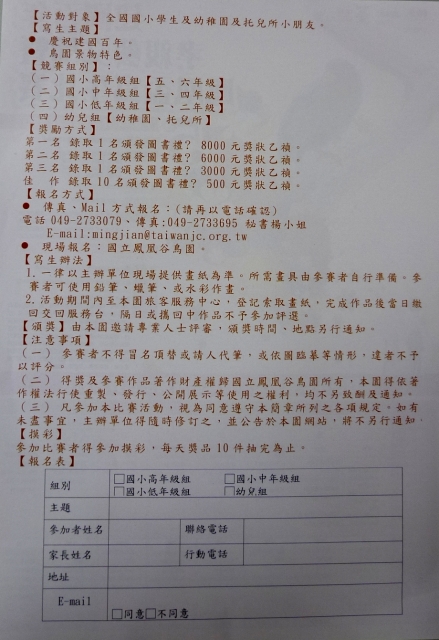 【活動對象】全國國小學生及幼稚園及托兒所小朋友。
【寫生主題】
● 慶祝建國百年。
● 鳥園景物特色。
【競賽組別】：
(一) 國小高年級組【五、六年級】
(二) 國小中年級組【三、四年級】
(三) 國小低年級組【一、二年級】
(四) 幼兒組【幼稚園、托兒所】
【獎勵方式】
第一名 錄取1名頒發圖書禮? 8000元獎狀乙禎。
第二名 錄取1名頒發圖書禮? 6000元獎狀乙禎。
第三名 錄取1名頒發圖書禮? 3000元獎狀乙禎。
佳 作 錄取10名頒發圖書禮? 500元獎狀乙禎。
【報名方式】
● 傳真、Mail方式報名：(請再以電話確認)
電話 049-2733079、傳真:049-2733695 秘書楊小姐
E-mail:mingjian@taiwanjc.org.tw
● 現場報名：國立鳳凰谷鳥園。
【寫生辦法】
1. 一律以主辦單位現場提供畫紙為準。所需畫具由參賽者自行準備。參
賽者可使用鉛筆、蠟筆、或水彩作畫。
2. 活動期間內至本園旅客服務中心，登記索取畫紙，完成作品後當日繳
回交回服務台，隔日或攜回中作品不予參加評選。
【頒獎】由本園邀請專業人士評審，頒獎時間、地點另行通知。
【注意事項】
(一) 參賽者不得冒名頂替或請人代筆，或依圖臨摹等情形，違者不予
以評分。
(二) 得獎及參賽作品著作財產權歸國立鳳凰谷鳥園所有，本園得依著
作權法行使重製、發行、公開展示等使用之權利，均不另致酬及通知。
(三) 凡參加本比賽活動，視為同意遵守本簡章所列之各項規定。如有
未盡事宜，主辦單位得隨時修訂之，並公告於本園網站，將不另行通知.
【摸彩】
參加比賽者得參加摸彩，每天獎品10件抽完為止。
【報名表】
組別 □國小高年級組 □國小中年級組
□國小低年級組 □幼兒組
主題
參加者姓名 聯絡電話
家長姓名 行動電話
地址
E-mail
□同意□不同意